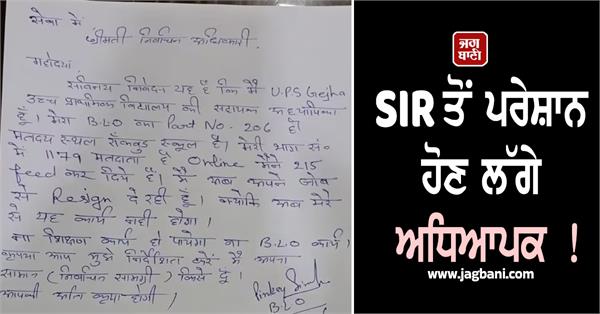 सेवा में
श्रीमती निर्वाचन अधिकारी.
महोदया
सविनय निवेदन यह है कि मैं U.P.S Gejha
उच्च प्राथमिक विद्यालय की सहायक अध्यापिका
हूँ। मेरा B.L.O का Part No. 206 है
मतदय स्थल रॉकवुड स्कूल है। मेरी भाग सं०
में 1179 मतदाता है Online मैंने 215
feed कर दिये है। मैं अब अपने जोब
से Resign दे रही हूँ। क्योकि अब मेरे
से यह कार्य नही होगा।
ना शिक्षण कार्य हो पायेगा ना B.L.O कार्य।
कृपया आप मुझे निर्देशित करें मैं अपना
सामान (निर्वाचन सामग्री) किसे दूँ।
आपकी अति कृपा होगी।
Pinkey Singh
B.L.O
ਜਗ
ਬਾਣੀ
SIR ਤੋਂ ਪਰੇਸ਼ਾਨ
ਹੋਣ ਲੱਗੇ
ਅਧਿਆਪਕ !
www.jagbani.com